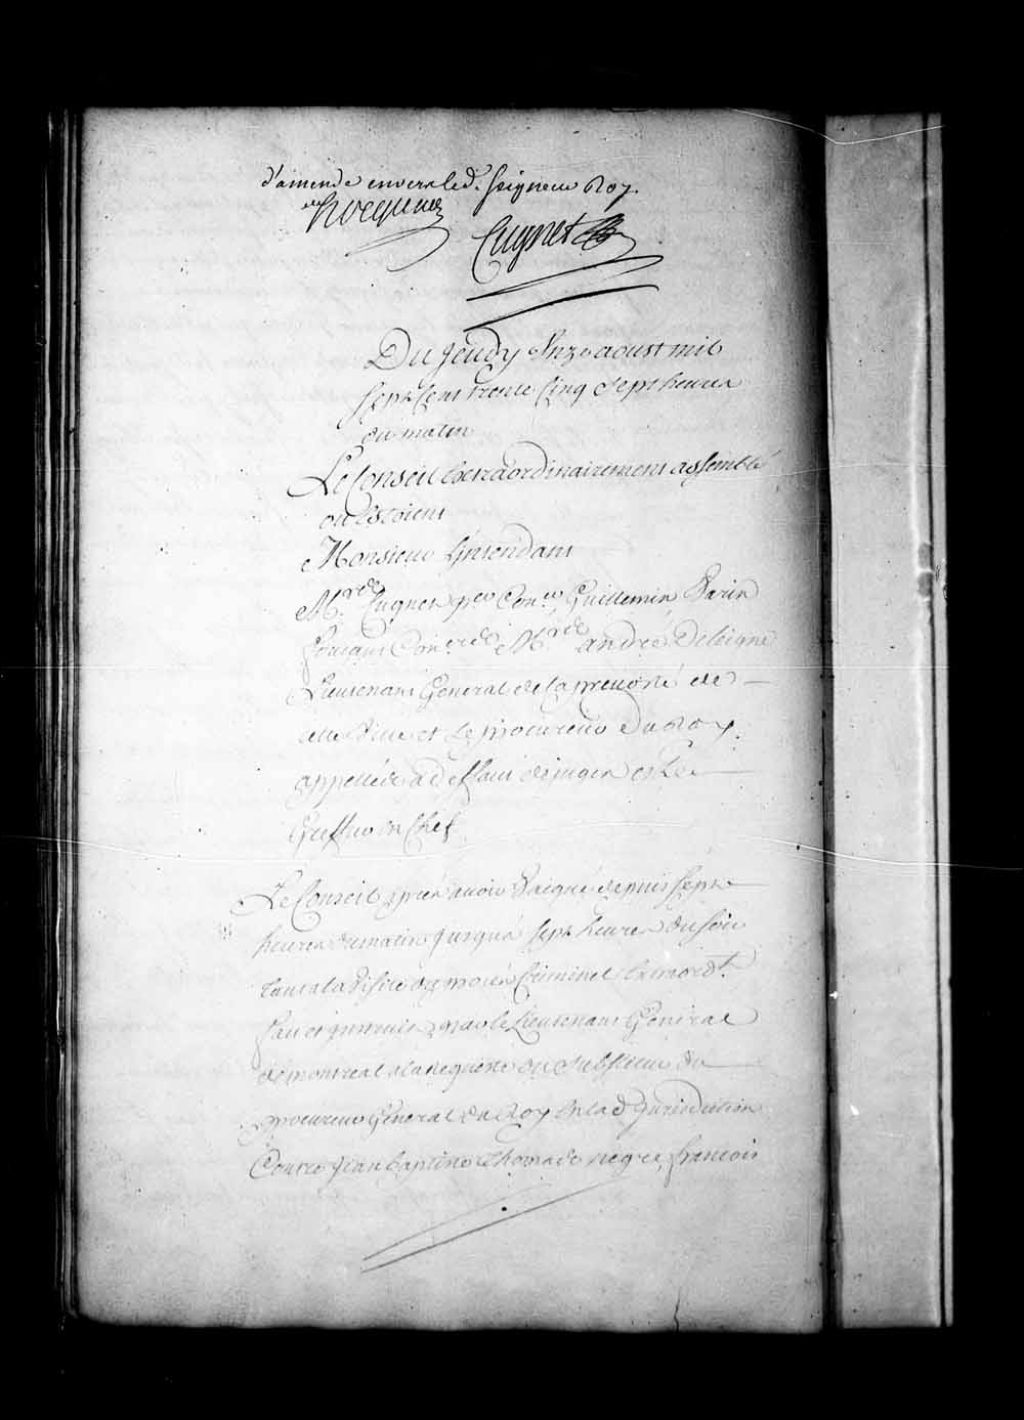 d'amende envers led. Seigneur Roy.
Hocquart
Cugnet
Du Jeudy Onze aoust mil
Sept Cent trente Cinq Sept heures
du matin
Le Conseil Extraordinairement assemblé
ou Estoient
Monsieur L'Intendant
Mrs. Cugnet per Coner, Guillemin, Varin
Foucault Coners Me. andré Deleigne
Lieutenant General de la prevosté de
ville et Le procureur Du Roy
appellés a deffaut de juges et Le
Greffier en Chef
Le Conseil aprés avoir Vacqué depuis sept
heures du matin jusqu'a sept heures du soir
tant a la Visite du procés Criminel Extraordt.
fait et jnstruit par le Lieutenant General
de montreal a la Requeste du Substitut du
procureur General du Roy En lad. Jurisdiction
Contre jean baptiste thomas negre, francois